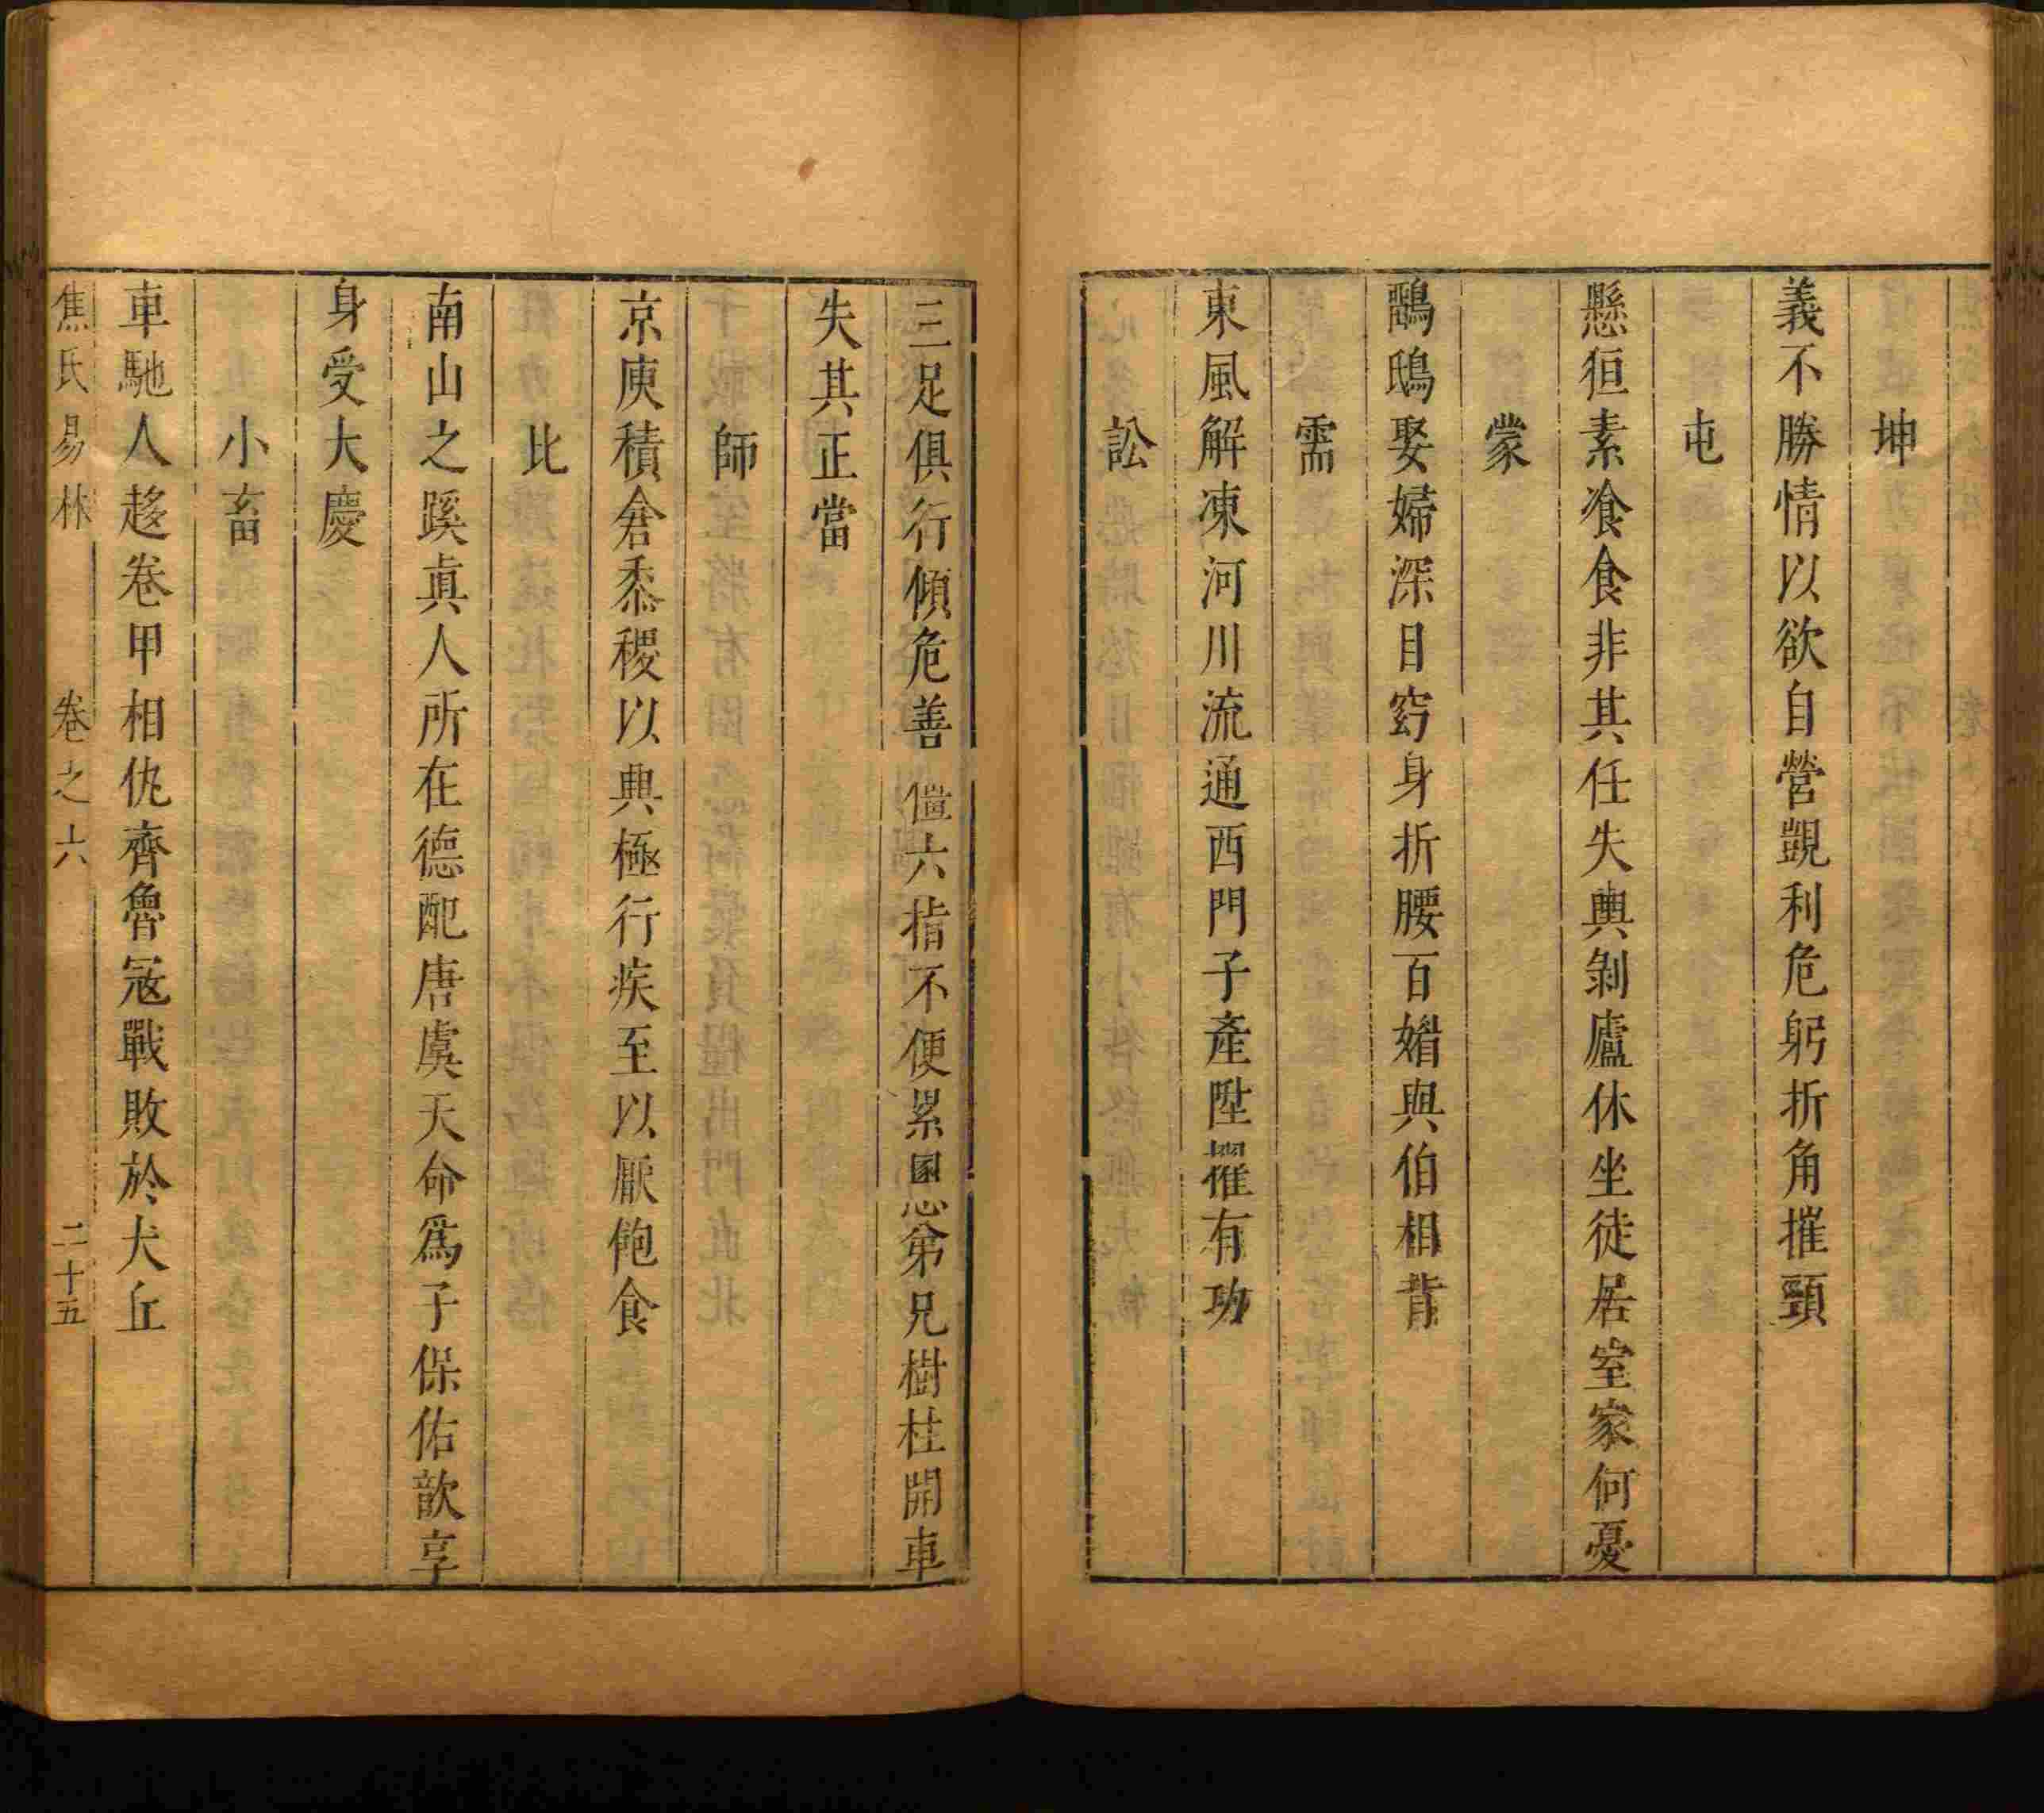 坤
義不勝情以欲自營覬利危躬折角摧頸
屯
懸狟素飡食非其任失輿剝廬休坐徙居室家何憂
蒙
鸜鴟娶婦深目窈身折腰百㛰與伯相背
需
東風解凍河川流通西門子產陞擢有功
訟
三足俱行傾危善儘六指不便累恩弟兄樹柱開車
失其正當
師
京庾積倉黍稷以興極行疾至以厭飽食
比
南山之蹊眞人所在德配唐虞天命爲子保佑歆享
身受大慶
小畜
車馳人趍卷甲相仇齊魯寇戰敗於犬丘
焦氏易林 卷之六 二十五